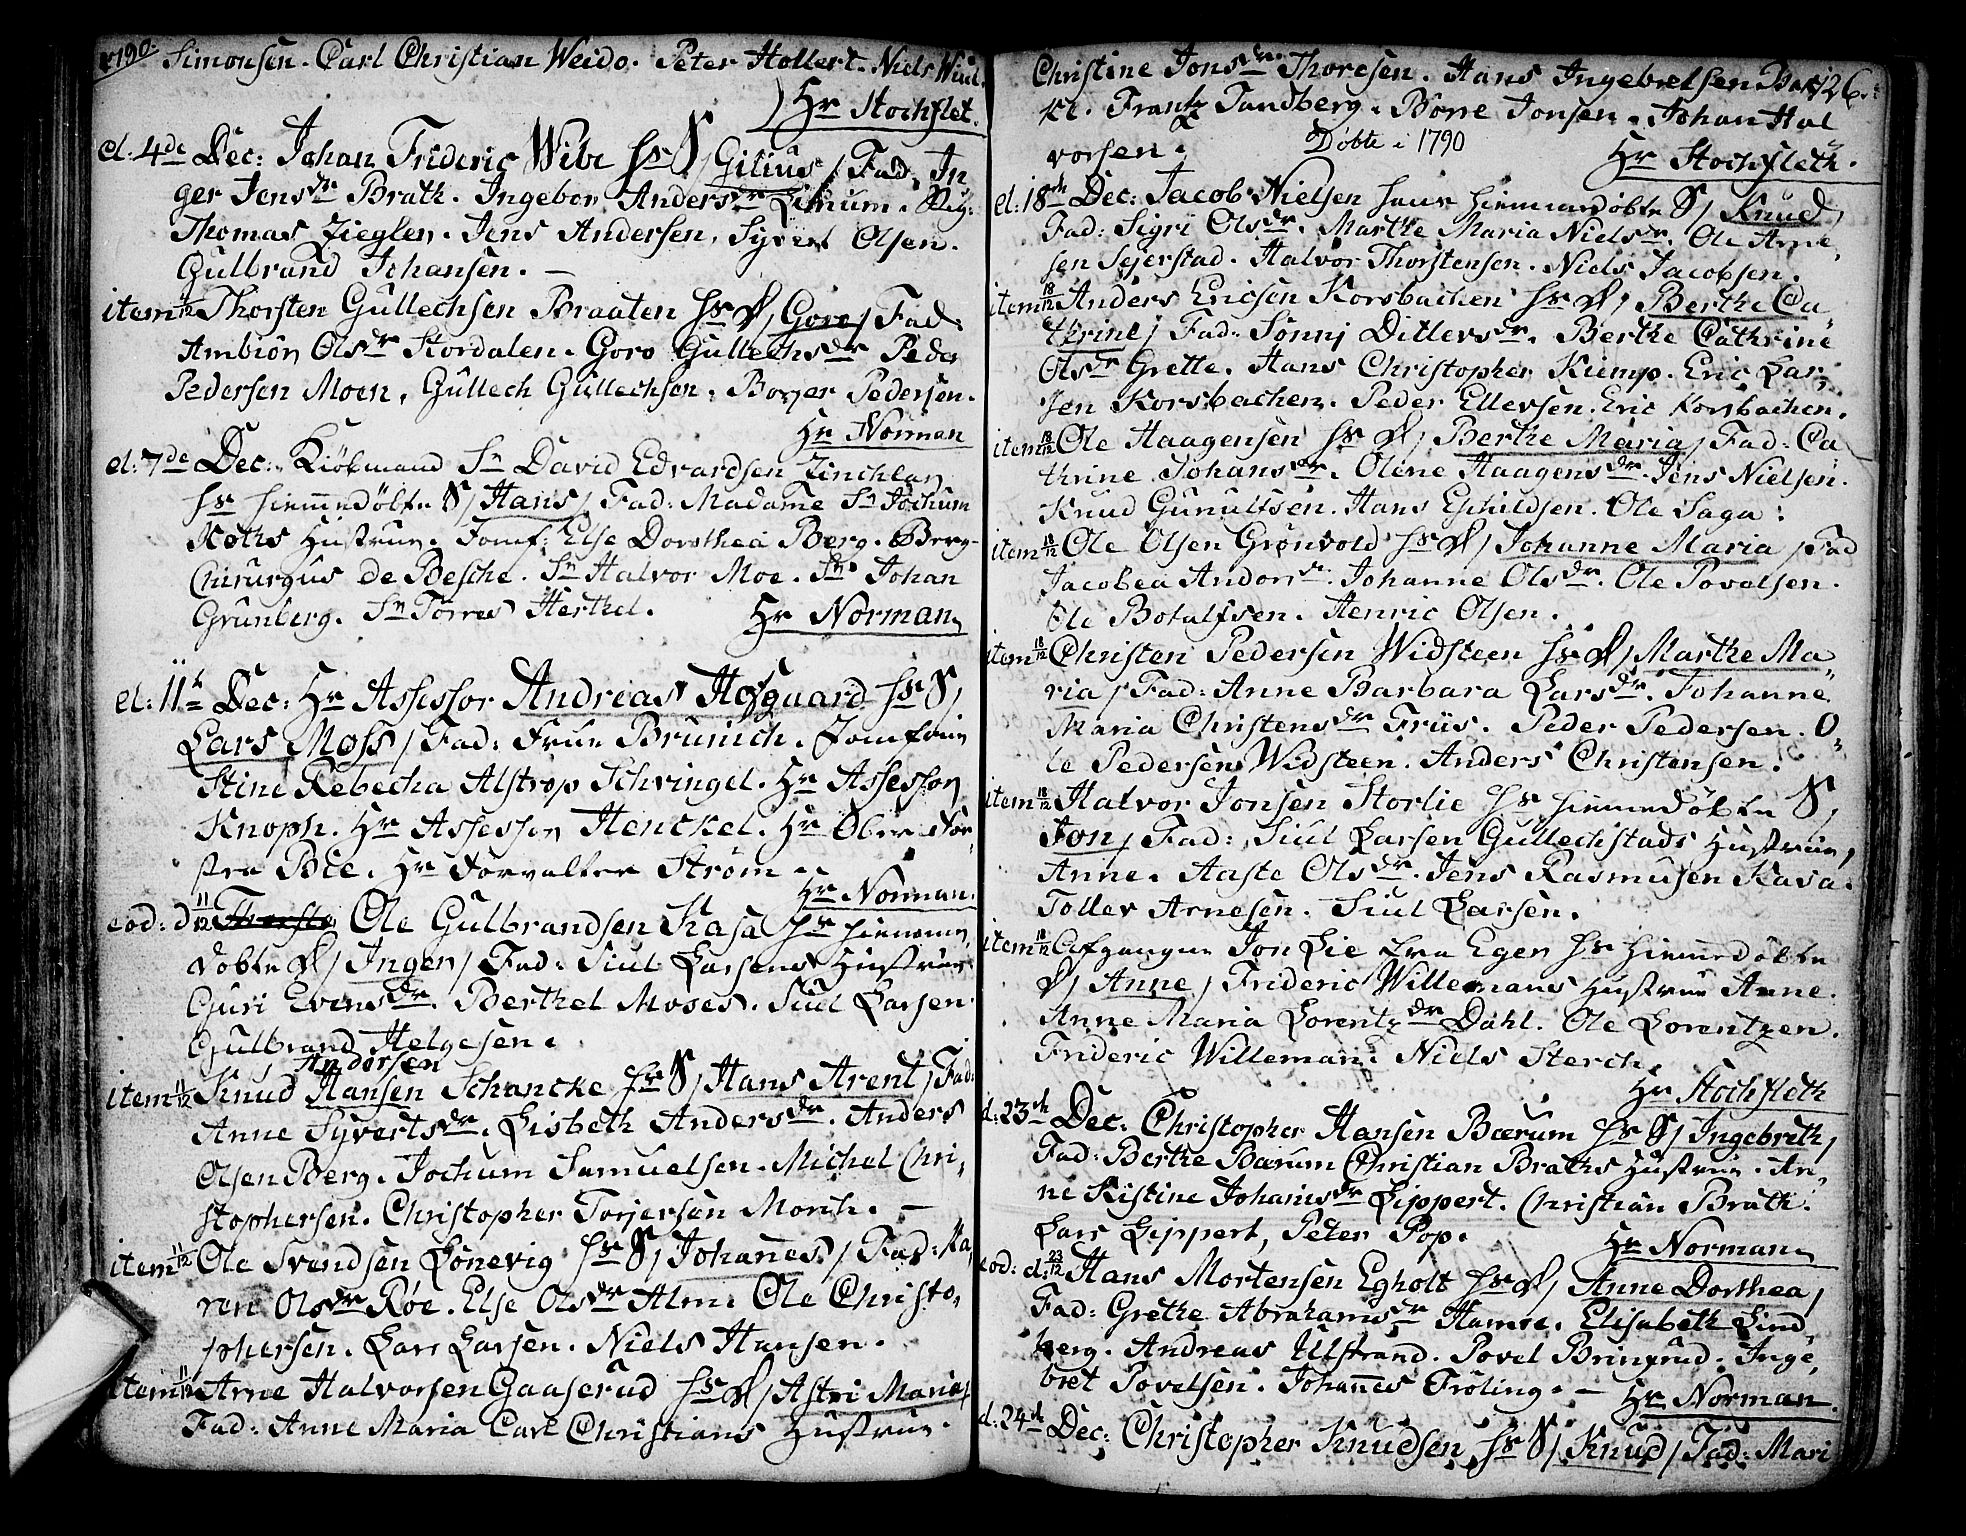 1790. Simonsen. Carl Christian Weido. Peter Hollert. Niels
Hr Stochflet.
d. 4de Dec: Johan Frideric Wibe hs S/ Gilius / Fad. In
ger Jensdr Brath. Ingebor Andersdr Limum.
Thomas Ziegler. Jens Andersen, Syvert Olsen.
Gulbrand Johansen. —
item 4/12 Thorsten Gullechsen Braaten hs D/ Goro / Fad:
Ambiön Olsdr Stordalen. Goro Gullechsdr Peder
Pedersen Moen, Gullech Gullechsen. Borger Pedersen.
Hr Norman
d: 7de Dec: Kiöbmand Sr David Edvardsen Zinchlar
hs hiemmedöbte S/ Hans / Fad: Madame Sr Jochum
Koths Hustrue. Jomf: Else Dorothea Berg. Berg-
Chirurgus de Besche. Sr Halvor Moe. Sr Johan
Grunberg. Sr Torres Hertel.
Hr Norman
d: 11te Dec: Hr Assessor Andreas Hofgaard hs S/
Lars Moss / Fad: Frue Brunich. Jomfrue
Stine Rebecha Alstrop Schvingel. Hr Assessor
Knoph. Hr Assessor Henckel. Hr Ober For-
ster Bie. Hr Forvalter Ström.
Hr Norman.
eod: d 11/12 Ole Gulbrandsen Kasa hs hiemme
döbte D/ Inger / Fad: Siul Larsens Hustrue
Guri Evensdr. Berthel Moses. Siul Larsen
Gulbrand Helgesen.
Andersen
item 11/12 Knud Hansen Schancke hs S/ Hans Arent / Fad:
Anne Syvertsdr. Lisbeth Andersdr. Anders
Olsen Berg. Jochum Samuelsen. Michel Chri-
stophersen. Christopher Torjersen Morch. —
item 11/12 Ole Svendsen Lönevig hs S/ Johanes / Fad: Ka
ren Olsdr Röe. Else Olsdr Alm. Ole Christo-
phersen. Lars Larsen. Niels Hansen.
item 11/12 Arne Halvorsen Gaaserud hs D/ Astri Maria /
Fad: Anne Maria Carl Christians Hustrue.
Christine Jonsdr Thoresen. Hans Ingebretsen 126.
ke. Frantz Tandberg. Börre Jonsen. Johan Hal
vorsen.
Döbte i 1790
Hr Stochfleth.
d: 18de Dec: Jacob Nielsen hans hiemmedöbte S/ Knud /
Fad: Sigri Olsdr. Marthe Maria Nielsdr. Ole Arne
sen Sejerstad. Halvor Thorstensen. Niels Jacobsen.
item 18/12 Anders Ericsen Korsbachen hs D/ Berthe Ca
thrine / Fad: Sönnj Ditlevsdr. Berthe Cathrine
Olsdr Grette. Hans Christopher Kiemp. Eric Lar
sen Korsbachen. Peder Ellevsen. Eric Korsbachen.
item 18/12 Ole Haagensen hs D/ Berthe Maria / Fad: Ca
thrine Johansdr. Olene Haagensdr. Jens Nielsen.
Knud Gunulfsen. Hans Eschildsen. Ole Saga:
item 18/12 Ole Olsen Grönvold hs D/ Johanne Maria / Fad
Jacobea Andersdr. Johanne Olsdr. Ole Povelsen.
Ole Botulfsen. Henric Olsen.
item 18/12 Christen Pedersen Widsteen hs D/ Marthe Ma
ria / Fad: Anne Barbara Larsdr. Johanne
Maria Christensdr Friis. Peder Pedersen. O-
le Pedersen Widsteen. Anders Christensen.
item 18/12 Halvor Jonsen Storlie hs hiemmedöbte S/
Jon / Fad: Siul Larsen Gullechstads Hustrue,
Anne. Aaste Olsdr. Jens Rasmusen Kasa.
Tollev Arnesen. Siul Larsen.
item 18/12 Afgangne Jon Lie fra Eger hs hiemmedöbte
D/ Anne / Frideric Willemans Hustrue Anne.
Anne Maria Lorentzdr Dahl. Ole Lorentzen.
Frideric Willeman. Niels Sterch.
Hr Stochfleth
d: 23de Dec. Christopher Hansen Bærum hs S/ Ingebreth /
Fad: Berthe Bærum Christian Braths Hustrue. An
ne Kistine Johanisdr Lippert. Christian Brath.
Lars Lippert, Peter Pop.
Hr Norman.
eod: d: 23/12 Hans Mortensen Egholt hs D/ Anne Dorthea /
Fad: Grethe Abrahamsdr Hamre. Elisabeth Lind
berg. Andreas Ulstrand. Povel Bringrud. Inge
bret Povelsen. Johannes Fröling. —
Hr Norman.
d: 24de Dec: Christopher Knudsen hs S/ Knud / Fad: Mari